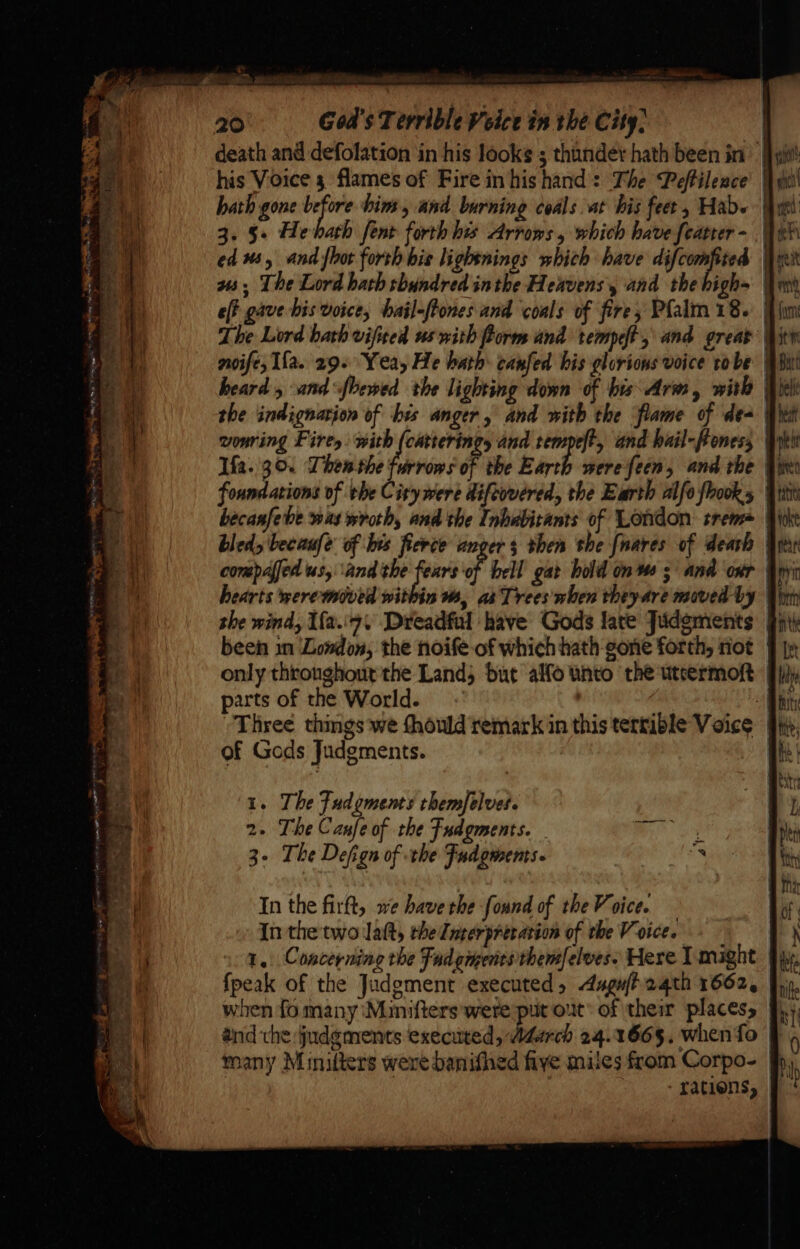 20 God's Terrible Voice in the City.
death and deſolation in his looks ; thunder hath been in
his Voice ; flames of Fire in his hand : The Peſtilence
hath gone before him, and burning coals at his feet, Hab.
3. 5. He hath ſent forth his Arrows, which have ſcatter-
ed us, and ſhot forth his lightnings which have diſcomfited
us; The Lord hath thundred in the Heavens, and the high-
eſt gave his voice, hail-ſtones and coals of fire, Pſalm 18.
The Lord hath viſited us with ſtorm and tempeſt, and great
noiſe, Iſa. 29. Yea, He hath cauſed his glorious voice to be
heard, and ſhewed the lighting down of his Arm, with
the indignation of his anger, and with the flame of de-
vouring Fire, with ſcatterings and tempeſt, and hail-ſtones,
Iſa. 30. Then the furrows of the Earth were ſeen, and the
foundations of the City were diſcovered, the Earth alſo ſhook,
becauſe he was wroth, and the Inhabitants of London trem-
bled, becauſe of his fierce anger ; then the ſnares of death
compaſſed us, and the fears of hell gat hold on us ; and our
hearts were moved within us, as Trees when they are moved by
the wind, Iſa. 7. Dreadful have Gods late Judgments
been in London, the noiſe of which hath gone forth, not
only throughout the Land, but alſo unto the uttermoſt
parts of the World.
Three things we ſhould remark in this terrible Voice
of Gods Judgments.
1. The Judgments themſelves.
2. The Cauſe of the Judgments.
3. The Deſign of the Judgments.
In the firſt, we have the ſound of the Voice.
In the two laſt, the Interpretation of the Voice.
1. Concerning the Judgments themſelves. Here I might
ſpeak of the Judgment executed, Auguſt 24th 1662,
when ſo many Miniſters were put out of their places,
and the judgments executed, March 24. 1665. when ſo
many Miniſters were baniſhed five miles from Corpo-
rations,